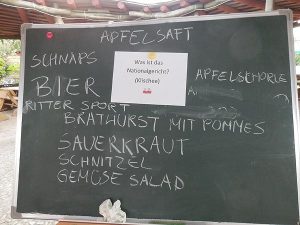 APFELSAFT
SCHNAPS
Was ist das
Nationalgericht?
(Klischee)
BIER
APFELSCHORLE
RITTER SPORT
BRATWURST MIT POMMES
SAUERKRAUT
SCHNITZEL
GEMÜSE SALAD